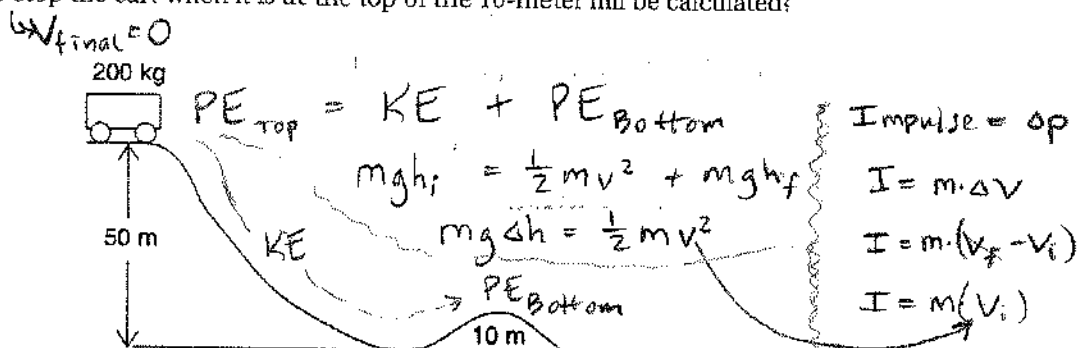 stop the cart when it is at the top of the 10-meter hill be calculated?
↳V final = 0
200 kg
PE Top = KE + PE Bottom
mghᵢ = ½ mv² + mgh_f
mgΔh = ½ mv²
50 m
KE
PE Bottom
10 m
Impulse = Δp
I = m·ΔV
I = m·(V_f - Vᵢ)
I = m(Vᵢ)